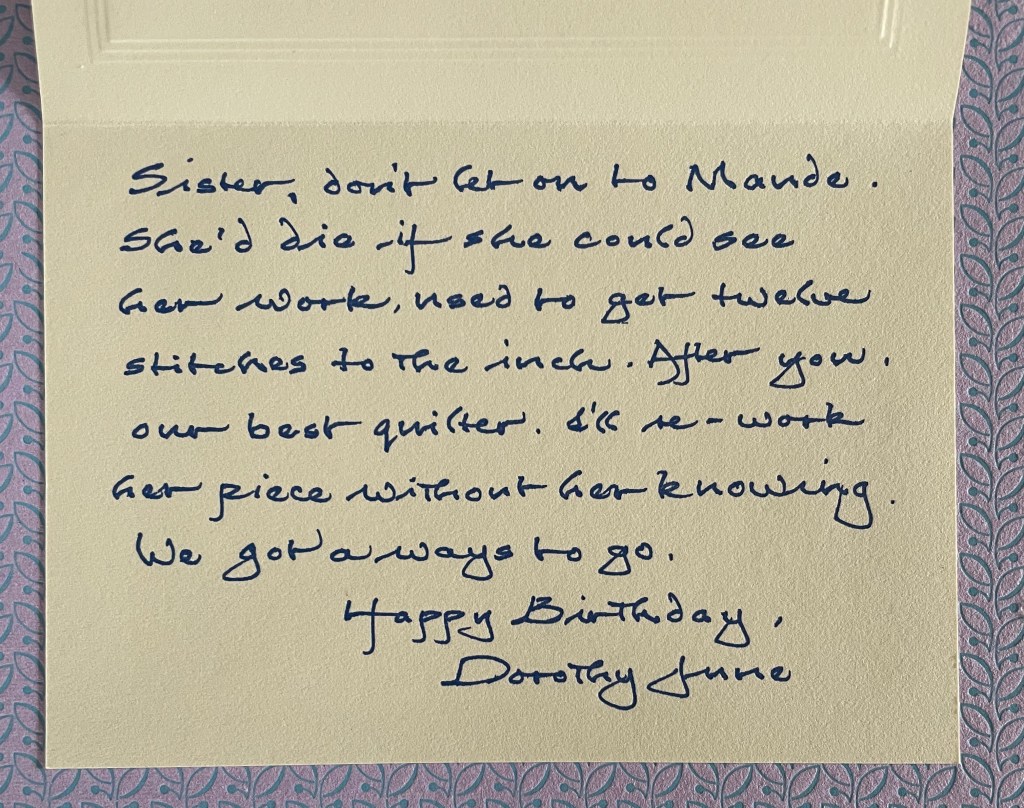 Sister, don't let on to Maude.
She'd die if she could see
her work, used to get twelve
stitches to the inch. After you,
our best quilter. I'll re-work
her piece without her knowing.
We got a ways to go.
Happy Birthday,
Dorothy June